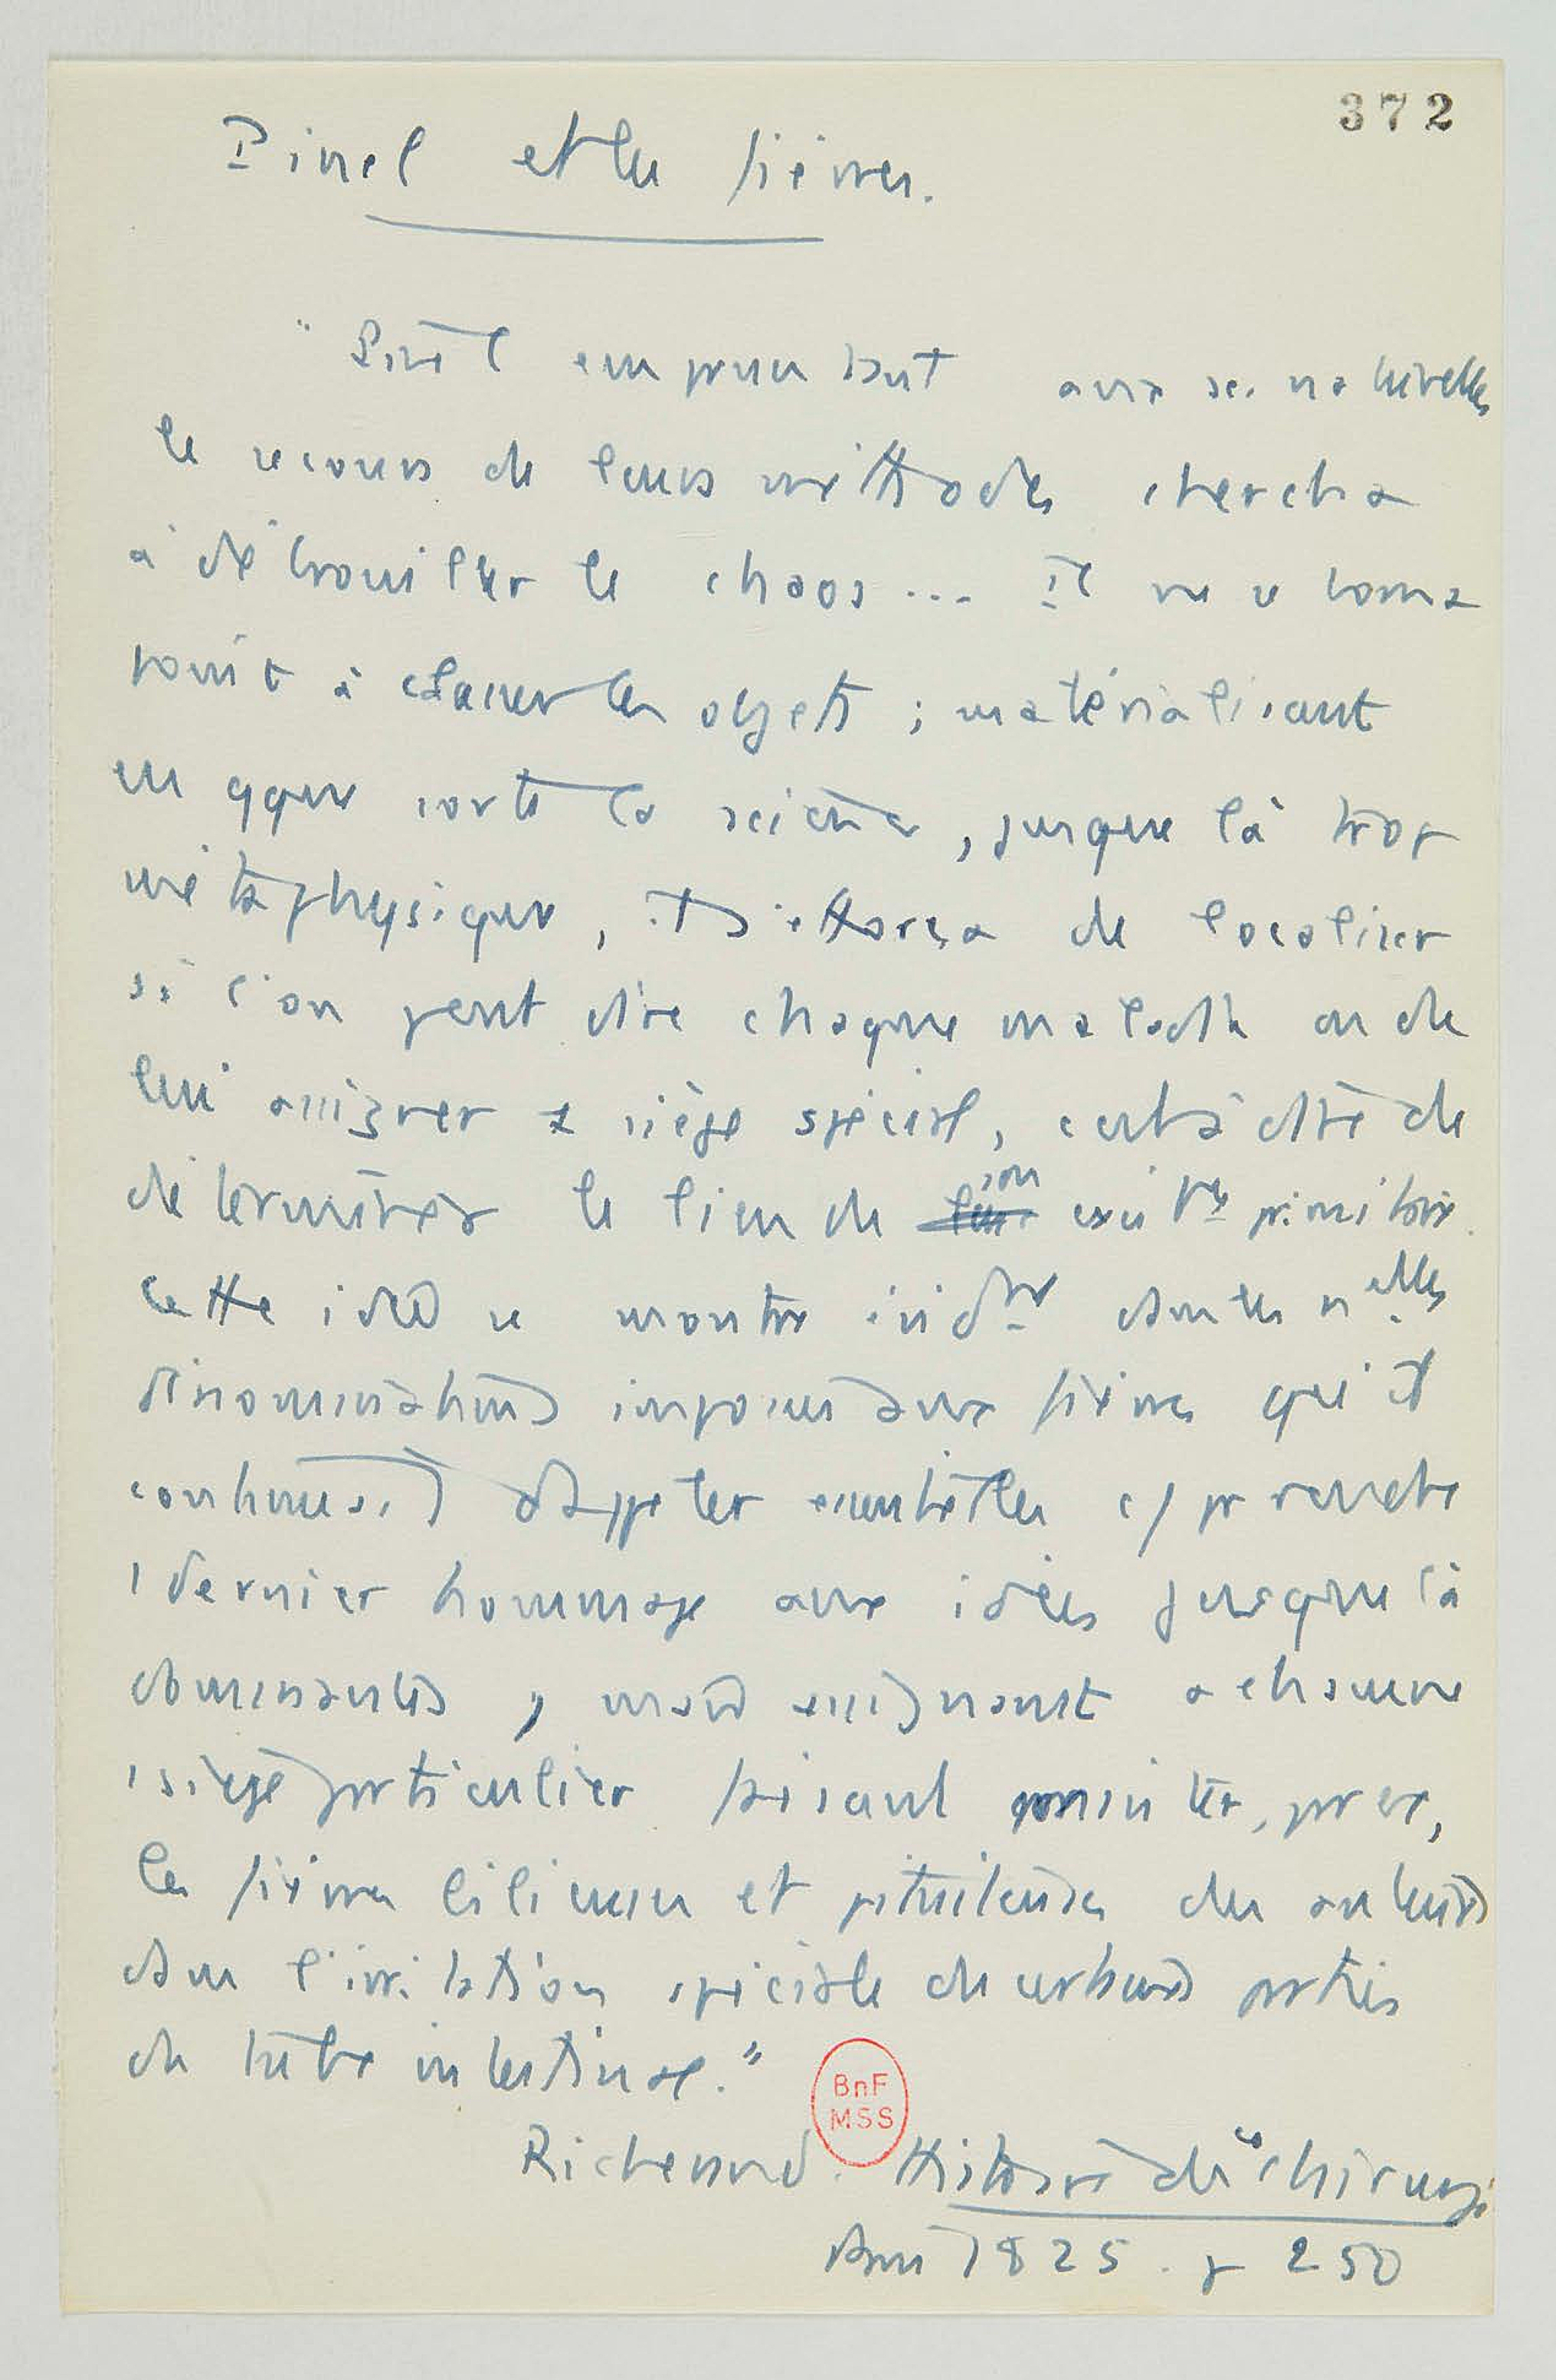 372
Pinel et les fièvres.
"Pinel empruntant aux sc. naturelles
le secours de leurs méthodes chercha
à débrouiller le chaos... Il ne se borna
point à classer les objets ; matérialisant
en qque sorte la science, jusque là trop
métaphysique, il s'efforça de localiser
si l'on peut dire chaque maladie ou de
lui assigner 1 siège spécial, c'est à dire de
déterminer le lieu de son exis^ce primitive.
Cette idée se montre évid^te dans les n^elles
dénominations imposées aux fièvres qu'il
continua d'appeler essentielles c/ pr rendre
1 dernier hommage aux idées jusque là
dominantes, mais assignant a chacune
1 siège particulier faisant consister, pr ex,
les fièvres bilieuses et pituiteuses des auteurs
dans l'irritation spéciale de certaines parties
du tube intestinal."
BnF
MSS
Richerand. Histoire de la chirurgie
Paris 1825. p 250